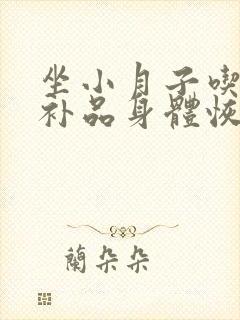 坐小月子喫
补品身體恢
蘭朵朵